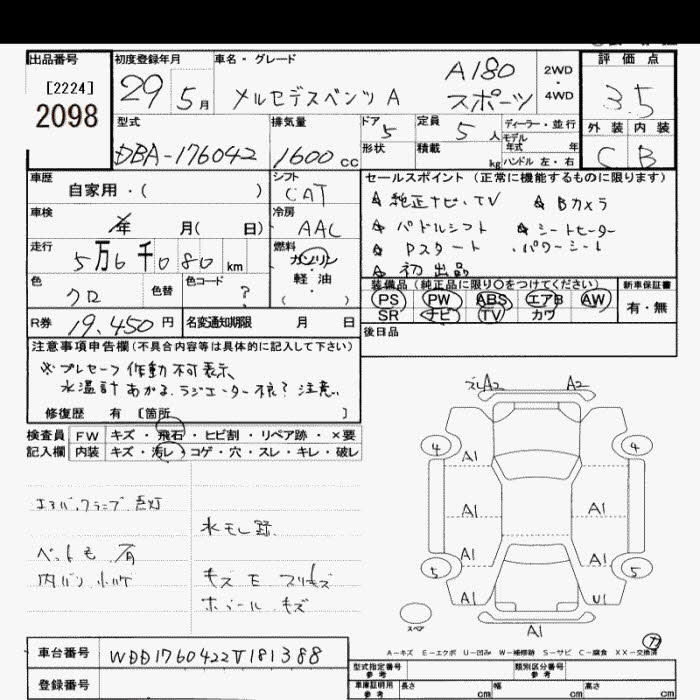 出品番号
[2224]
2098
初度登録年月
29 5月
車名・グレード
A180
メルセデスベンツ A スポーツ
2WD
・
4WD
評価点
3.5
型式
DBA-176042
排気量
1600cc
ドア
5
定員
5人
ディーラー・並行
モデル
年式 年
形状
積載
kg
ハンドル 左・右
外装 内装
C B
車歴
自家用・( )
シフト
CAT
セールスポイント (正常に機能するものに限ります)
純正ナビ、TV
Bカメラ
パドルシフト
シートヒーター
Pスタート ・パワーシート
初出品
車検
年 月( 日)
冷房
AAC
走行
5万6千080km
燃料
ガソリン
軽油
( )
色
クロ
色替
色コード
?
装備品 (純正品に限り○をつけてください)
PS PW ABS エアB AW
SR ナビ TV カワ
新車保証書
有・無
R券
19,450円
名変通知期限 月 日
後日品
注意事項申告欄(不具合内容等は具体的に記入して下さい)
※プレセーフ作動不可表示、
水温計あがる、ラジエーター不良? 注意。
修復歴 有 [箇所 ]
検査員
記入欄
FW キズ・飛石・ヒビ割・リペア跡・×要
内装 キズ・汚レ・コゲ・穴・スレ・キレ・破レ
点灯
水モレ跡
ペットモ 有
キズ
キズ
A2 A2
4 4
A1
A1 A1
A1 A1
5 5
A1 U1
スペア
A1
A-キズ E-エクボ U-凹み W-補修跡 S-サビ C-腐食 XX-交換済
車台番号
WDD1760422V181388
登録番号
型式指定番号
参考
類別区分番号
参考
車庫証明用
参考
長さ cm
幅 cm
高さ cm